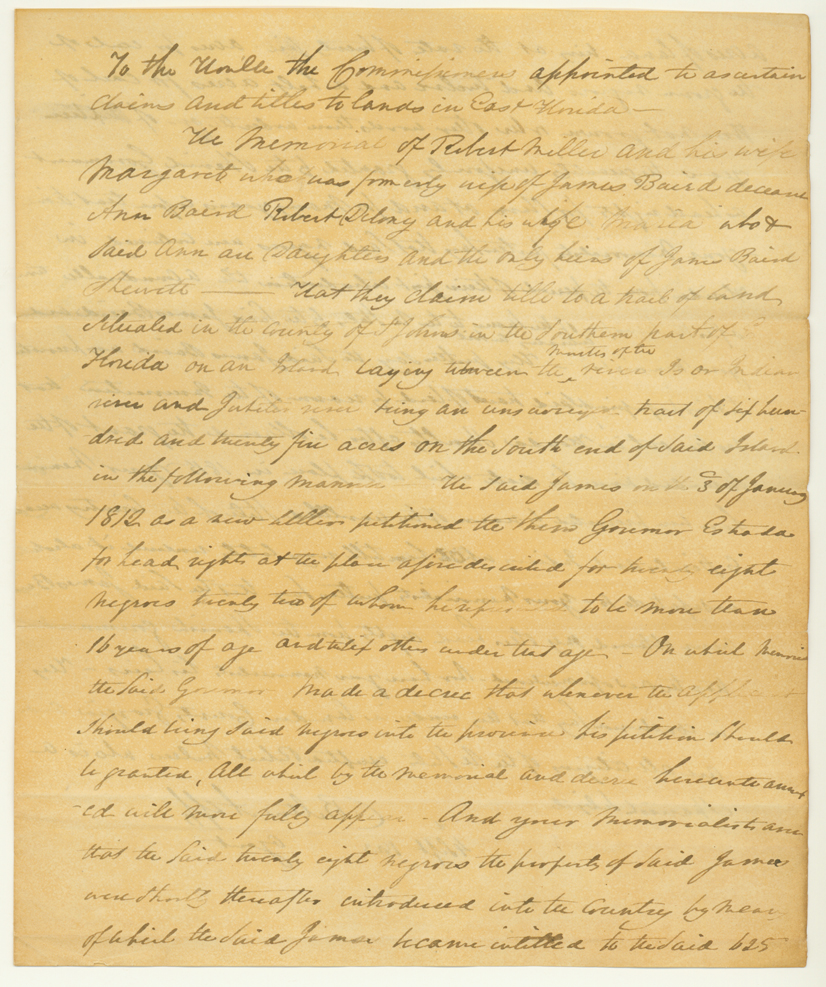 To the Honble the Commissioners appointed to ascertain
claims and titles to lands in East Florida —
The Memorial of Robert Miller and his wife
Margaret who was formerly wife of James Baird deceased
Ann Baird Robert Delony and his wife Maria who &
Said Ann are Daughters and the only heirs of James Baird
Sheweth —— That they claim title to a tract of land
situated in the County of St Johns in the Southern part of
Florida on an Island laying between the mouths of the river Is or Indian
river and Jupiter river being an unsurveyed tract of six hun-
dred and twenty five acres on the South end of Said Island
in the following manner The Said James on the 3d of January
1812 as a new settler petitioned the then Governor Estrada
for head rights at the place aforedescribed for twenty eight
negroes twenty two of whom he to be more than
16 years of age and six others under that age - On which memorial
the Said Governor made a decree that whenever the applicant
should bring Said negroes into the province his petition should
be granted, All which by the memorial and decree hereunto annex-
ed will more fully appear - And your memorialists
that the Said twenty eight negroes the property of Said James
were shortly thereafter introduced into the Country by means
of which the Said James became intitled to the Said 625